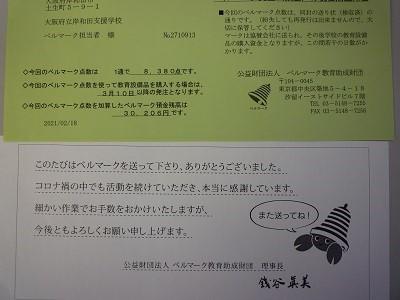 土生町5-9-1
大阪府立岸和田支援学校
ベルマーク担当者 様
№2710913
◇今回のベルマーク点数は 1通で 8,380点です。
◇今回のベルマーク点数を使って教育設備品を購入する場合は、
3月10日以降の発注となります。
◇今回の点数を加算したベルマーク預金残高は
30,206円です。
2021/02/18
■今回のベルマーク点数は、同封の送り状（検収済）の
通りです。
マークは協賛会社に送られ、その後学校の教育設備
公益財団法人 ベルマーク教育助成財団
〒104-0045
東京都中央区築地5-4-18
汐留イーストサイドビル7階
TEL 03-5148-7255
ベルマーク
このたびはベルマークを送って下さり、ありがとうございました。
コロナ禍の中でも活動を続けていただき、本当に感謝しています。
細かい作業でお手数をおかけいたしますが、
今後ともよろしくお願い申し上げます。
また送ってね！
公益財団法人 ベルマーク教育助成財団 理事長
銭谷眞美